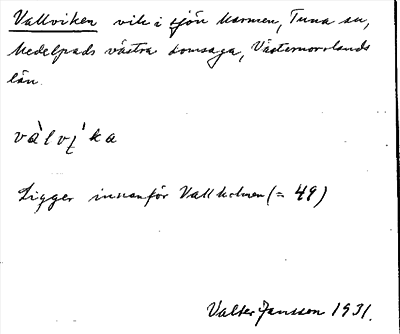 Vallviken vik i sjön Marmen, Tuna sn,
Medelpads västra domsaga, Västernorrlands
län.
và̀lvi̗ka
Ligger innanför Vallholmen (= 49)
Valter Jansson 1931.